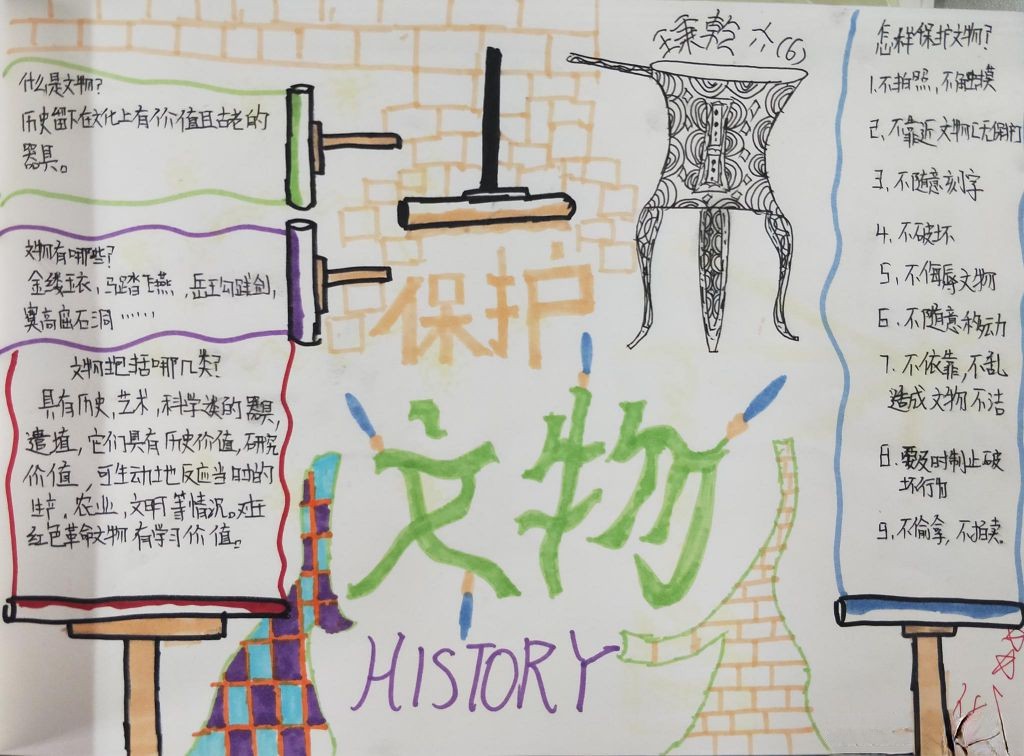 什么是文物?
历史留下在文化上有价值且古老的
器具。
文物有哪些?
金缕玉衣,马踏飞燕,岳王勾践剑,
莫高窟石洞……
文物包括哪几类?
具有历史,艺术,科学类的器具,
遗墟,它们具有历史价值,研究
价值,可生动地反应当时的
生产,农业,文明等情况。对于
红色革命文物有学习价值。
保护
文物
HISTORY
六(6)
怎样保护文物?
1.不拍照,不触摸
2、不靠近文物(无保护)
3、不随意刻字
4.不破坏
5、不侮辱文物
6、不随意移动
7.不依靠,不乱
造成文物不洁
8.要及时制止破
坏行为
9.不偷拿,不拍卖。